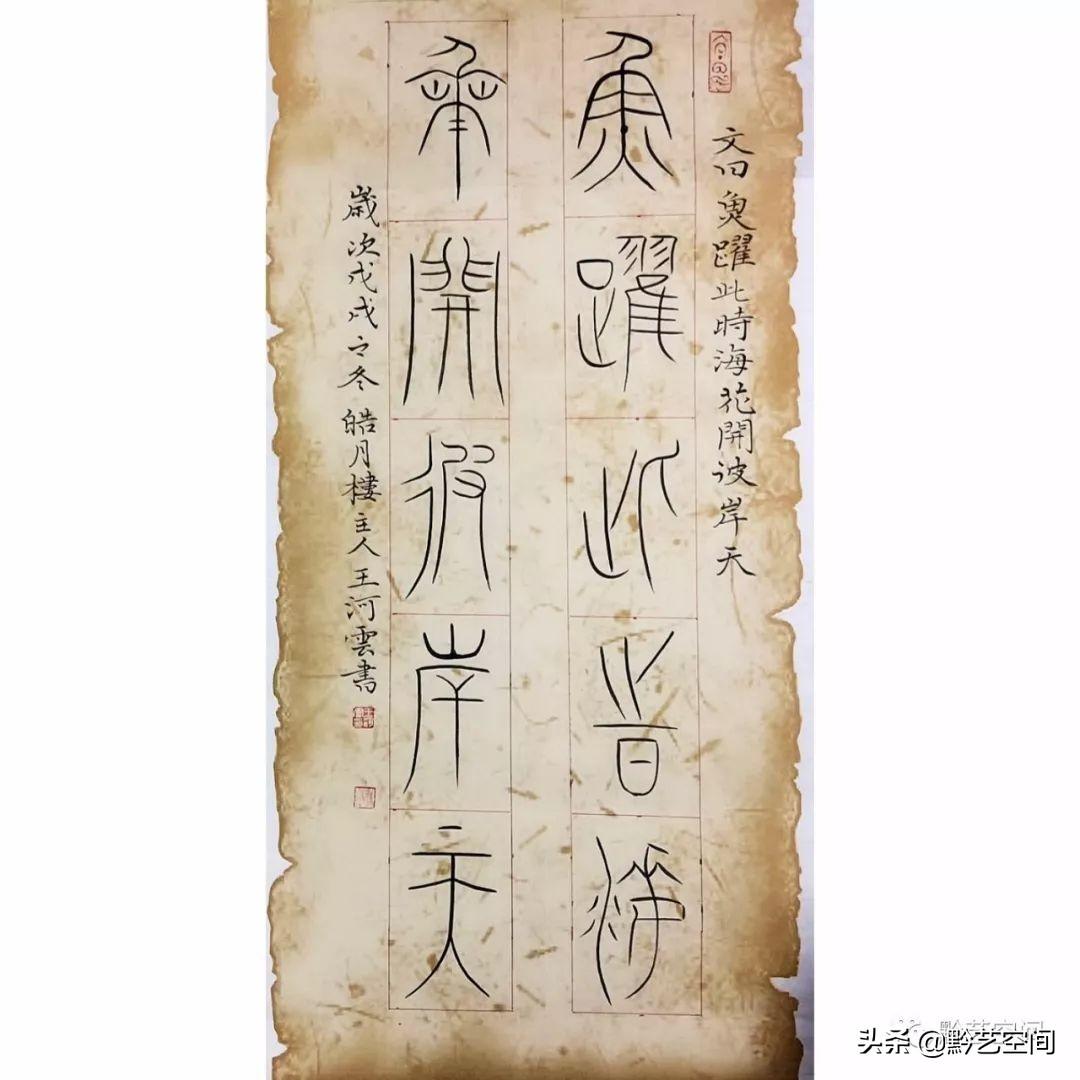 文曰魚躍此時海花開彼岸天
魚躍此旹海
華開彼岸天
歲次戊戌之冬皓月樓主人王河雲書
黔艺空间
头条 @黔艺空间